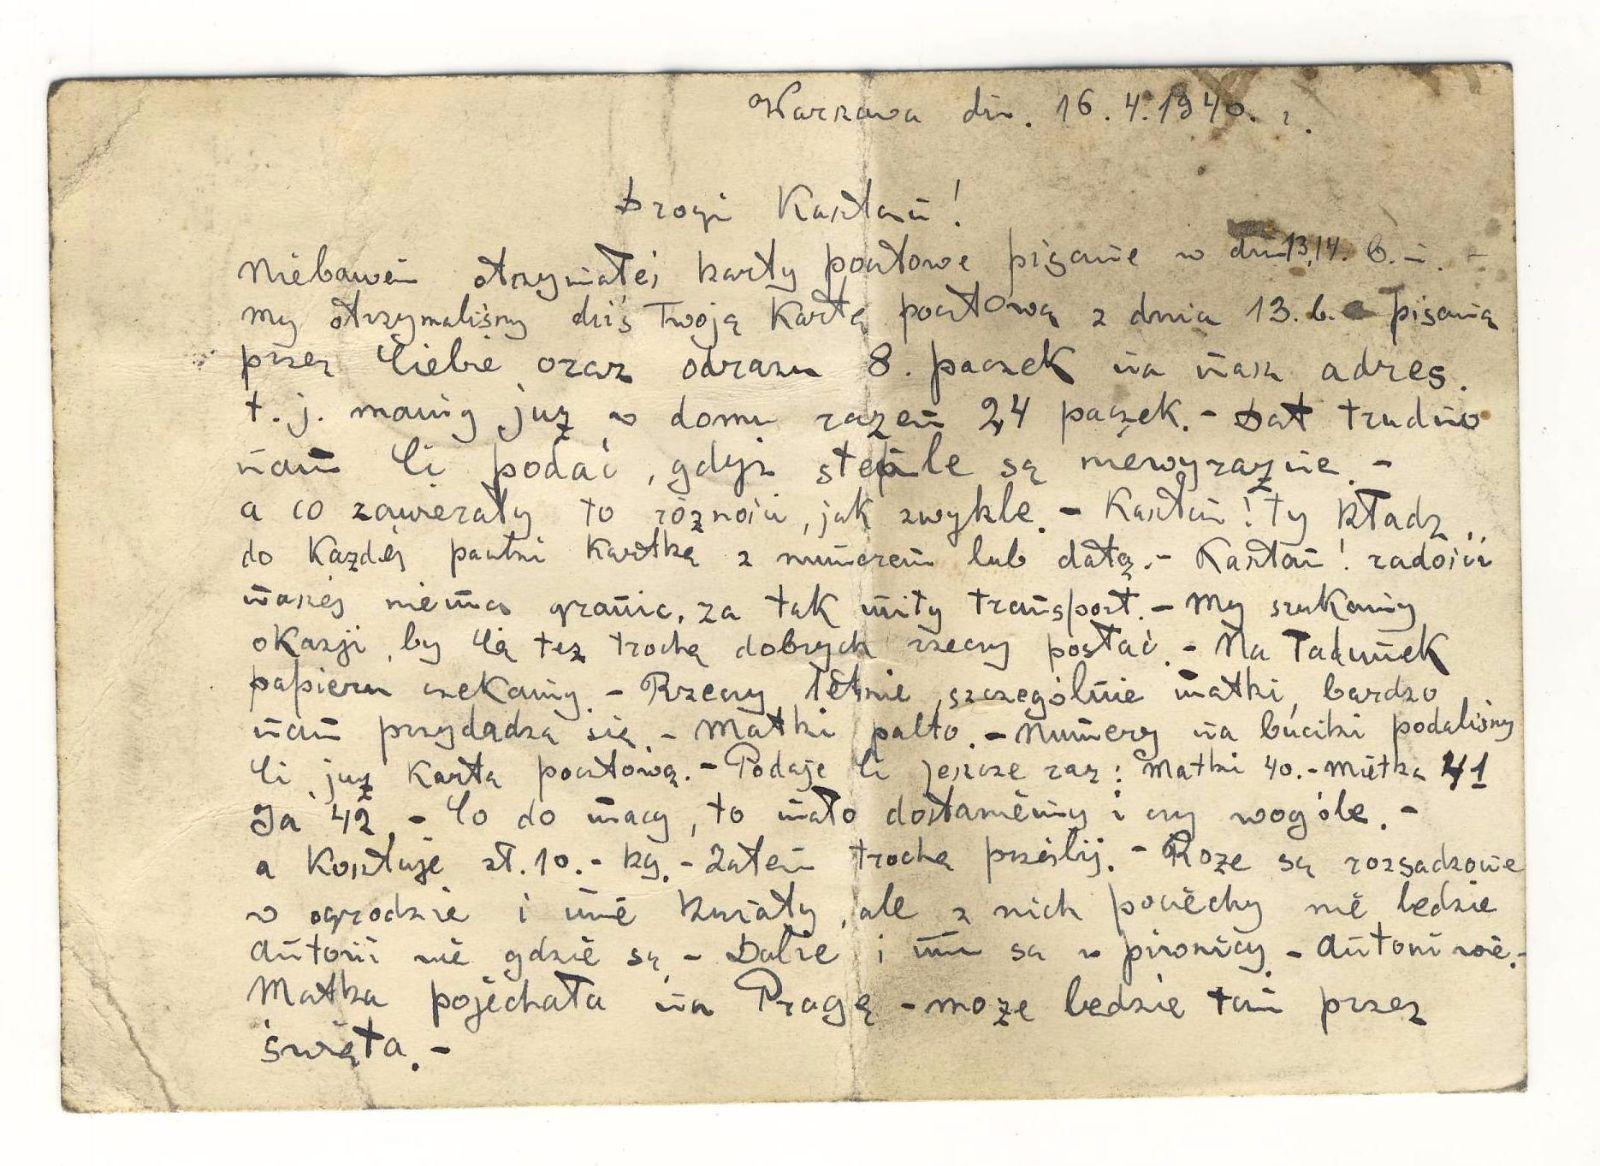 Warszawa dn. 16.4.1940. r.
Drogi Kasztan!
Niebawem otrzymałeś karty pocztowe pisane w dn 13,14. b.m. -
my otrzymaliśmy dziś Twoją Kartę pocztową z dnia 13. b. pisaną
przez Ciebie oraz odrazu 8. paczek na nasz adres.
t.j. mamy już w domu razem 24 paczek. - Dat trudno
nam Ci podać, gdyż stemple są niewyraźne. -
a co zawierały to różności, jak zwykle. - Kasztan! ty kładz
do Każdej paczki Kartkę z numerem lub datą. - Kasztan! radości
naszej niema granic, za tak miły transport. - My szukamy
okazji, by Ci też trochę dobrych rzeczy posłać. - Na Ładunek
papieru czekamy. - Rzeczy letnie, szczególnie matki, bardzo
nam przydadzą się. - Matki palto. - Numery na buciki podaliśmy
Ci już Kartą pocztową. - Podaję Ci jeszcze raz: Matki 40. - Mietka 41
Ja 42. - Co do macy, to mało dostaniemy i czy wogóle. -
a Kosztuje zł. 10. - kg. - Zatem trochę prześlij. - Róże są rozsadzone
w ogrodzie i inne kwiaty, ale z nich pociechy nie będzie
Antoni wie gdzie są. - Dalie i inn są w piwnicy. - Antoni wie. -
Matka pojechała na Pragę - może będzie tam przez
święta. -